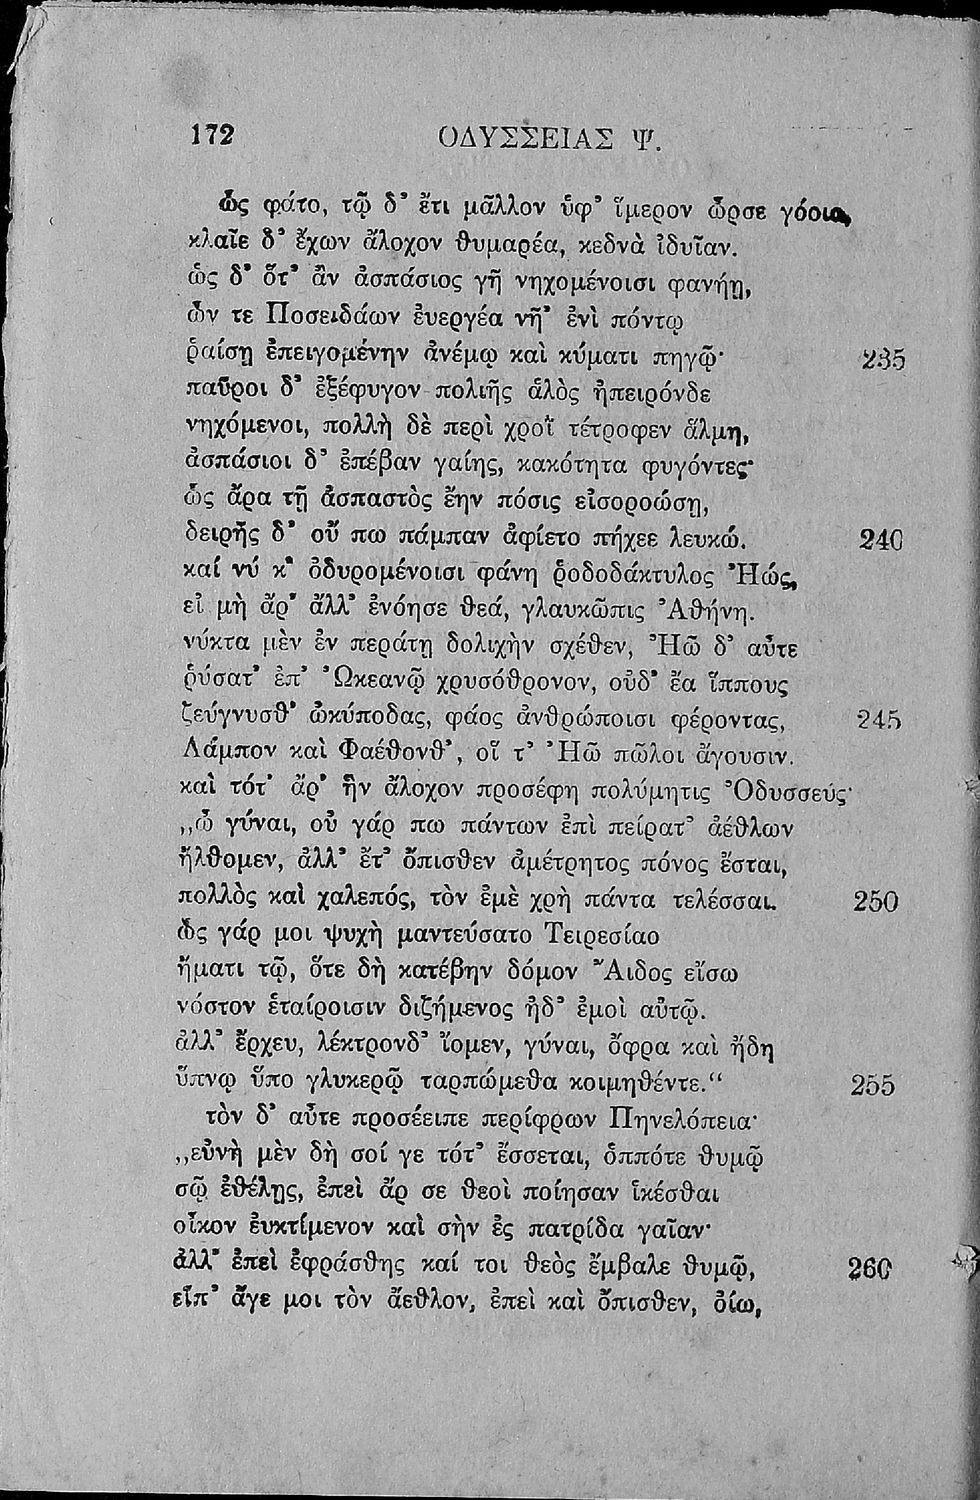 172 ΟΔΥΣΣΕΙΑΣ Ψ.
ὣς φάτο, τῷ δ’ ἔτι μᾶλλον ὑφ’ ἵμερον ὦρσε γόοιο,
κλαῖε δ’ ἔχων ἄλοχον θυμαρέα, κεδνὰ ἰδυῖαν.
ὡς δ’ ὅτ’ ἂν ἀσπάσιος γῆ νηχομένοισι φανήῃ,
ὧν τε Ποσειδάων ἐυεργέα νῆ’ ἐνὶ πόντῳ
ῥαίσῃ ἐπειγομένην ἀνέμῳ καὶ κύματι πηγῷ· 235
παῦροι δ’ ἐξέφυγον πολιῆς ἁλὸς ἠπειρόνδε
νηχόμενοι, πολλὴ δὲ περὶ χροῒ τέτροφεν ἅλμη,
ἀσπάσιοι δ’ ἐπέβαν γαίης, κακότητα φυγόντες·
ὣς ἄρα τῇ ἀσπαστὸς ἔην πόσις εἰσοροώσῃ,
δειρῆς δ’ οὔ πω πάμπαν ἀφίετο πήχεε λευκώ. 240
καί νύ κ’ ὀδυρομένοισι φάνη ῥοδοδάκτυλος Ἠώς,
εἰ μὴ ἄρ’ ἄλλ’ ἐνόησε θεά, γλαυκῶπις Ἀθήνη.
νύκτα μὲν ἐν περάτῃ δολιχὴν σχέθεν, Ἠῶ δ’ αὖτε
ῥύσατ’ ἐπ’ Ὠκεανῷ χρυσόθρονον, οὐδ’ ἔα ἵππους
ζεύγνυσθ’ ὠκύποδας, φάος ἀνθρώποισι φέροντας, 245
Λάμπον καὶ Φαέθονθ’, οἵ τ’ Ἠῶ πῶλοι ἄγουσιν.
καὶ τότ’ ἄρ’ ἣν ἄλοχον προσέφη πολύμητις Ὀδυσσεύς·
„ὦ γύναι, οὐ γάρ πω πάντων ἐπὶ πείρατ’ ἀέθλων
ἤλθομεν, ἀλλ’ ἔτ’ ὄπισθεν ἀμέτρητος πόνος ἔσται,
πολλὸς καὶ χαλεπός, τὸν ἐμὲ χρὴ πάντα τελέσσαι. 250
ὣς γάρ μοι ψυχὴ μαντεύσατο Τειρεσίαο
ἤματι τῷ, ὅτε δὴ κατέβην δόμον Ἄιδος εἴσω
νόστον ἑταίροισιν διζήμενος ἠδ’ ἐμοὶ αὐτῷ.
ἀλλ’ ἔρχευ, λέκτρονδ’ ἴομεν, γύναι, ὄφρα καὶ ἤδη
ὕπνῳ ὕπο γλυκερῷ ταρπώμεθα κοιμηθέντε.“ 255
τὸν δ’ αὖτε προσέειπε περίφρων Πηνελόπεια·
„εὐνὴ μὲν δὴ σοί γε τότ’ ἔσσεται, ὁππότε θυμῷ
σῷ ἐθέλῃς, ἐπεὶ ἄρ σε θεοὶ ποίησαν ἱκέσθαι
οἶκον ἐυκτίμενον καὶ σὴν ἐς πατρίδα γαῖαν·
ἀλλ’ ἐπεὶ ἐφράσθης καί τοι θεὸς ἔμβαλε θυμῷ, 260
εἴπ’ ἄγε μοι τὸν ἄεθλον, ἐπεὶ καὶ ὄπισθεν, ὀίω,